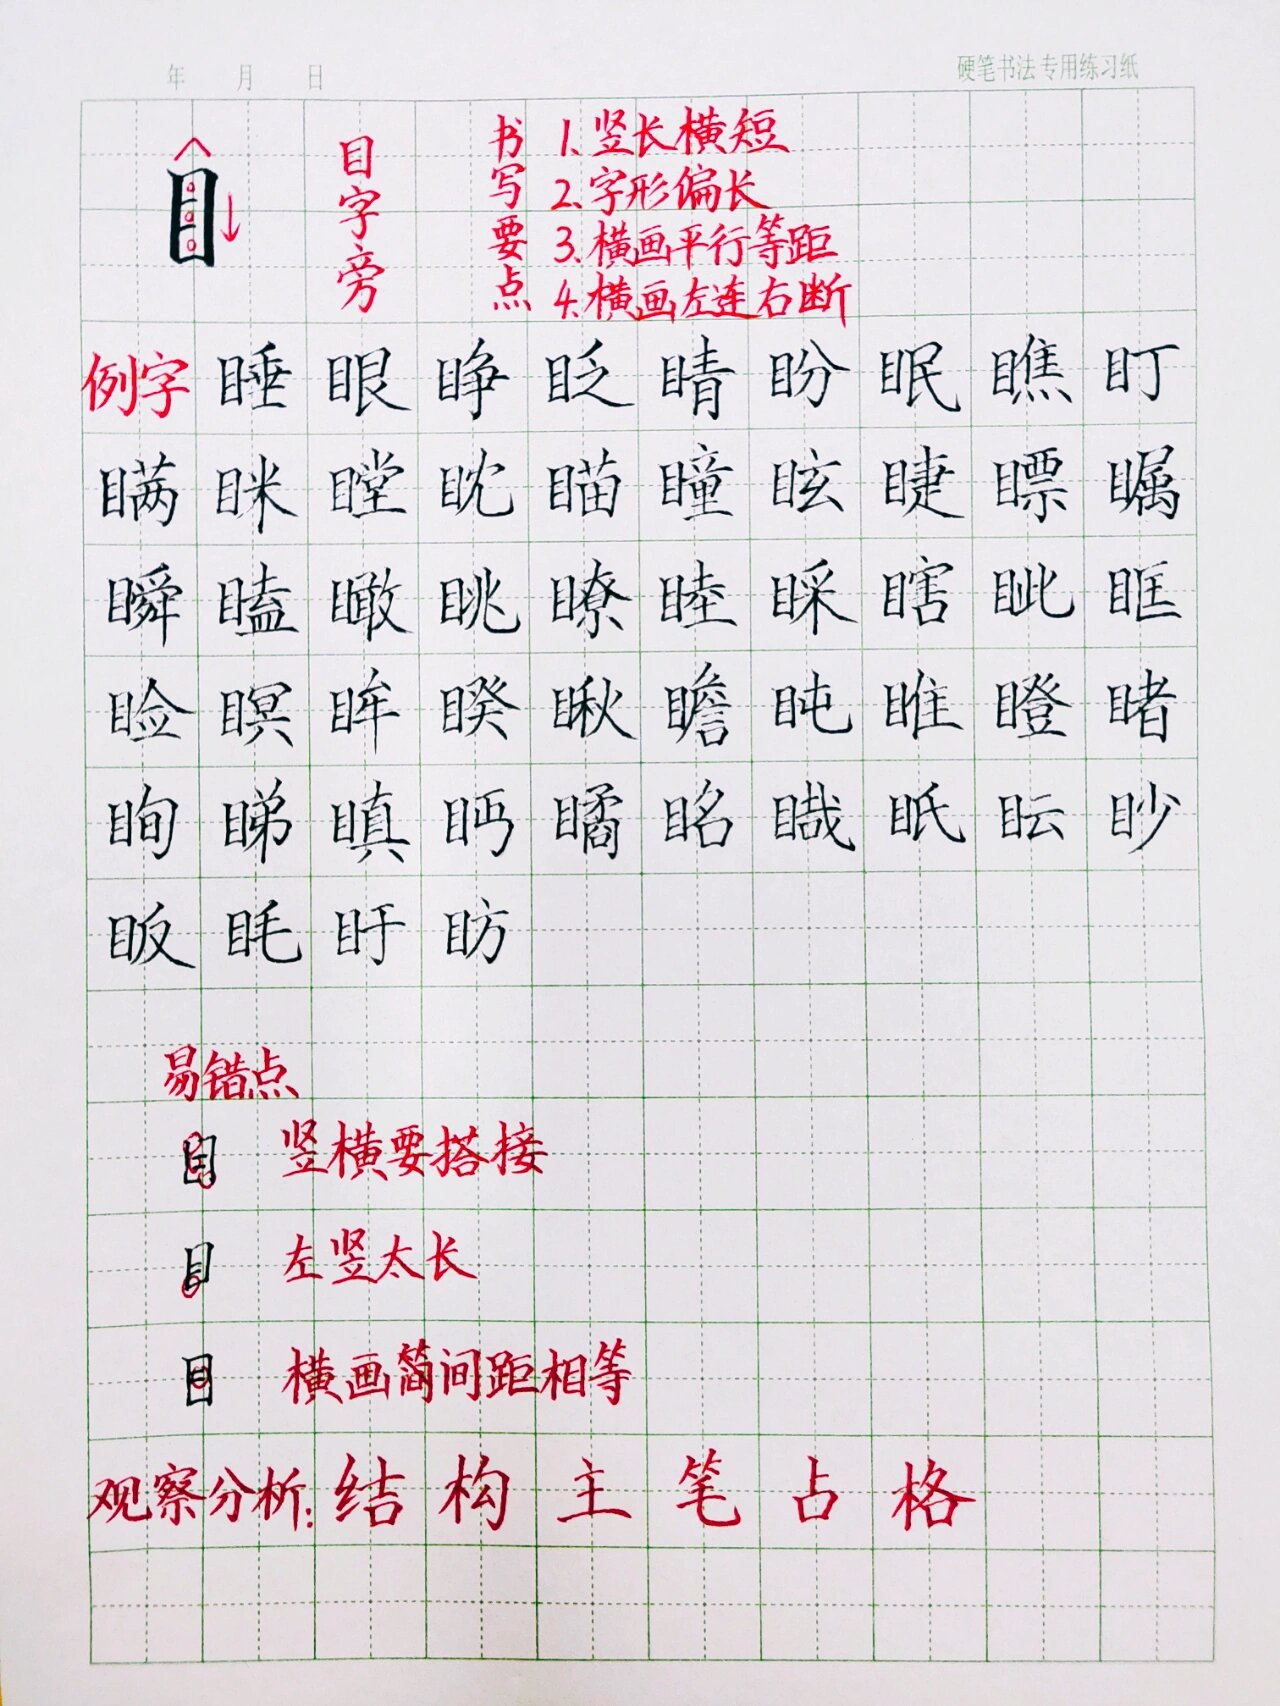 年 月 日
硬笔书法专用练习纸
目
目字旁
书写要点
1.竖长横短
2.字形偏长
3.横画平行等距
4.横画左连右断
例字 睡 眼 睁 眨 睛 盼 眠 瞧 盯
瞒 眯 瞠 眈 瞄 瞳 眩 睫 瞟 瞩
瞬 瞌 瞰 眺 瞭 睦 睬 瞎 眦 眶
睑 瞑 眸 睽 瞅 瞻 盹 睢 瞪 睹
眴 睇 瞋 眄 瞲 眳 睵 眠 眃 眇
眅 眊 盱 眆
易错点
目 竖横要搭接
目 左竖太长
目 横画简间距相等
观察分析:结构主笔占格